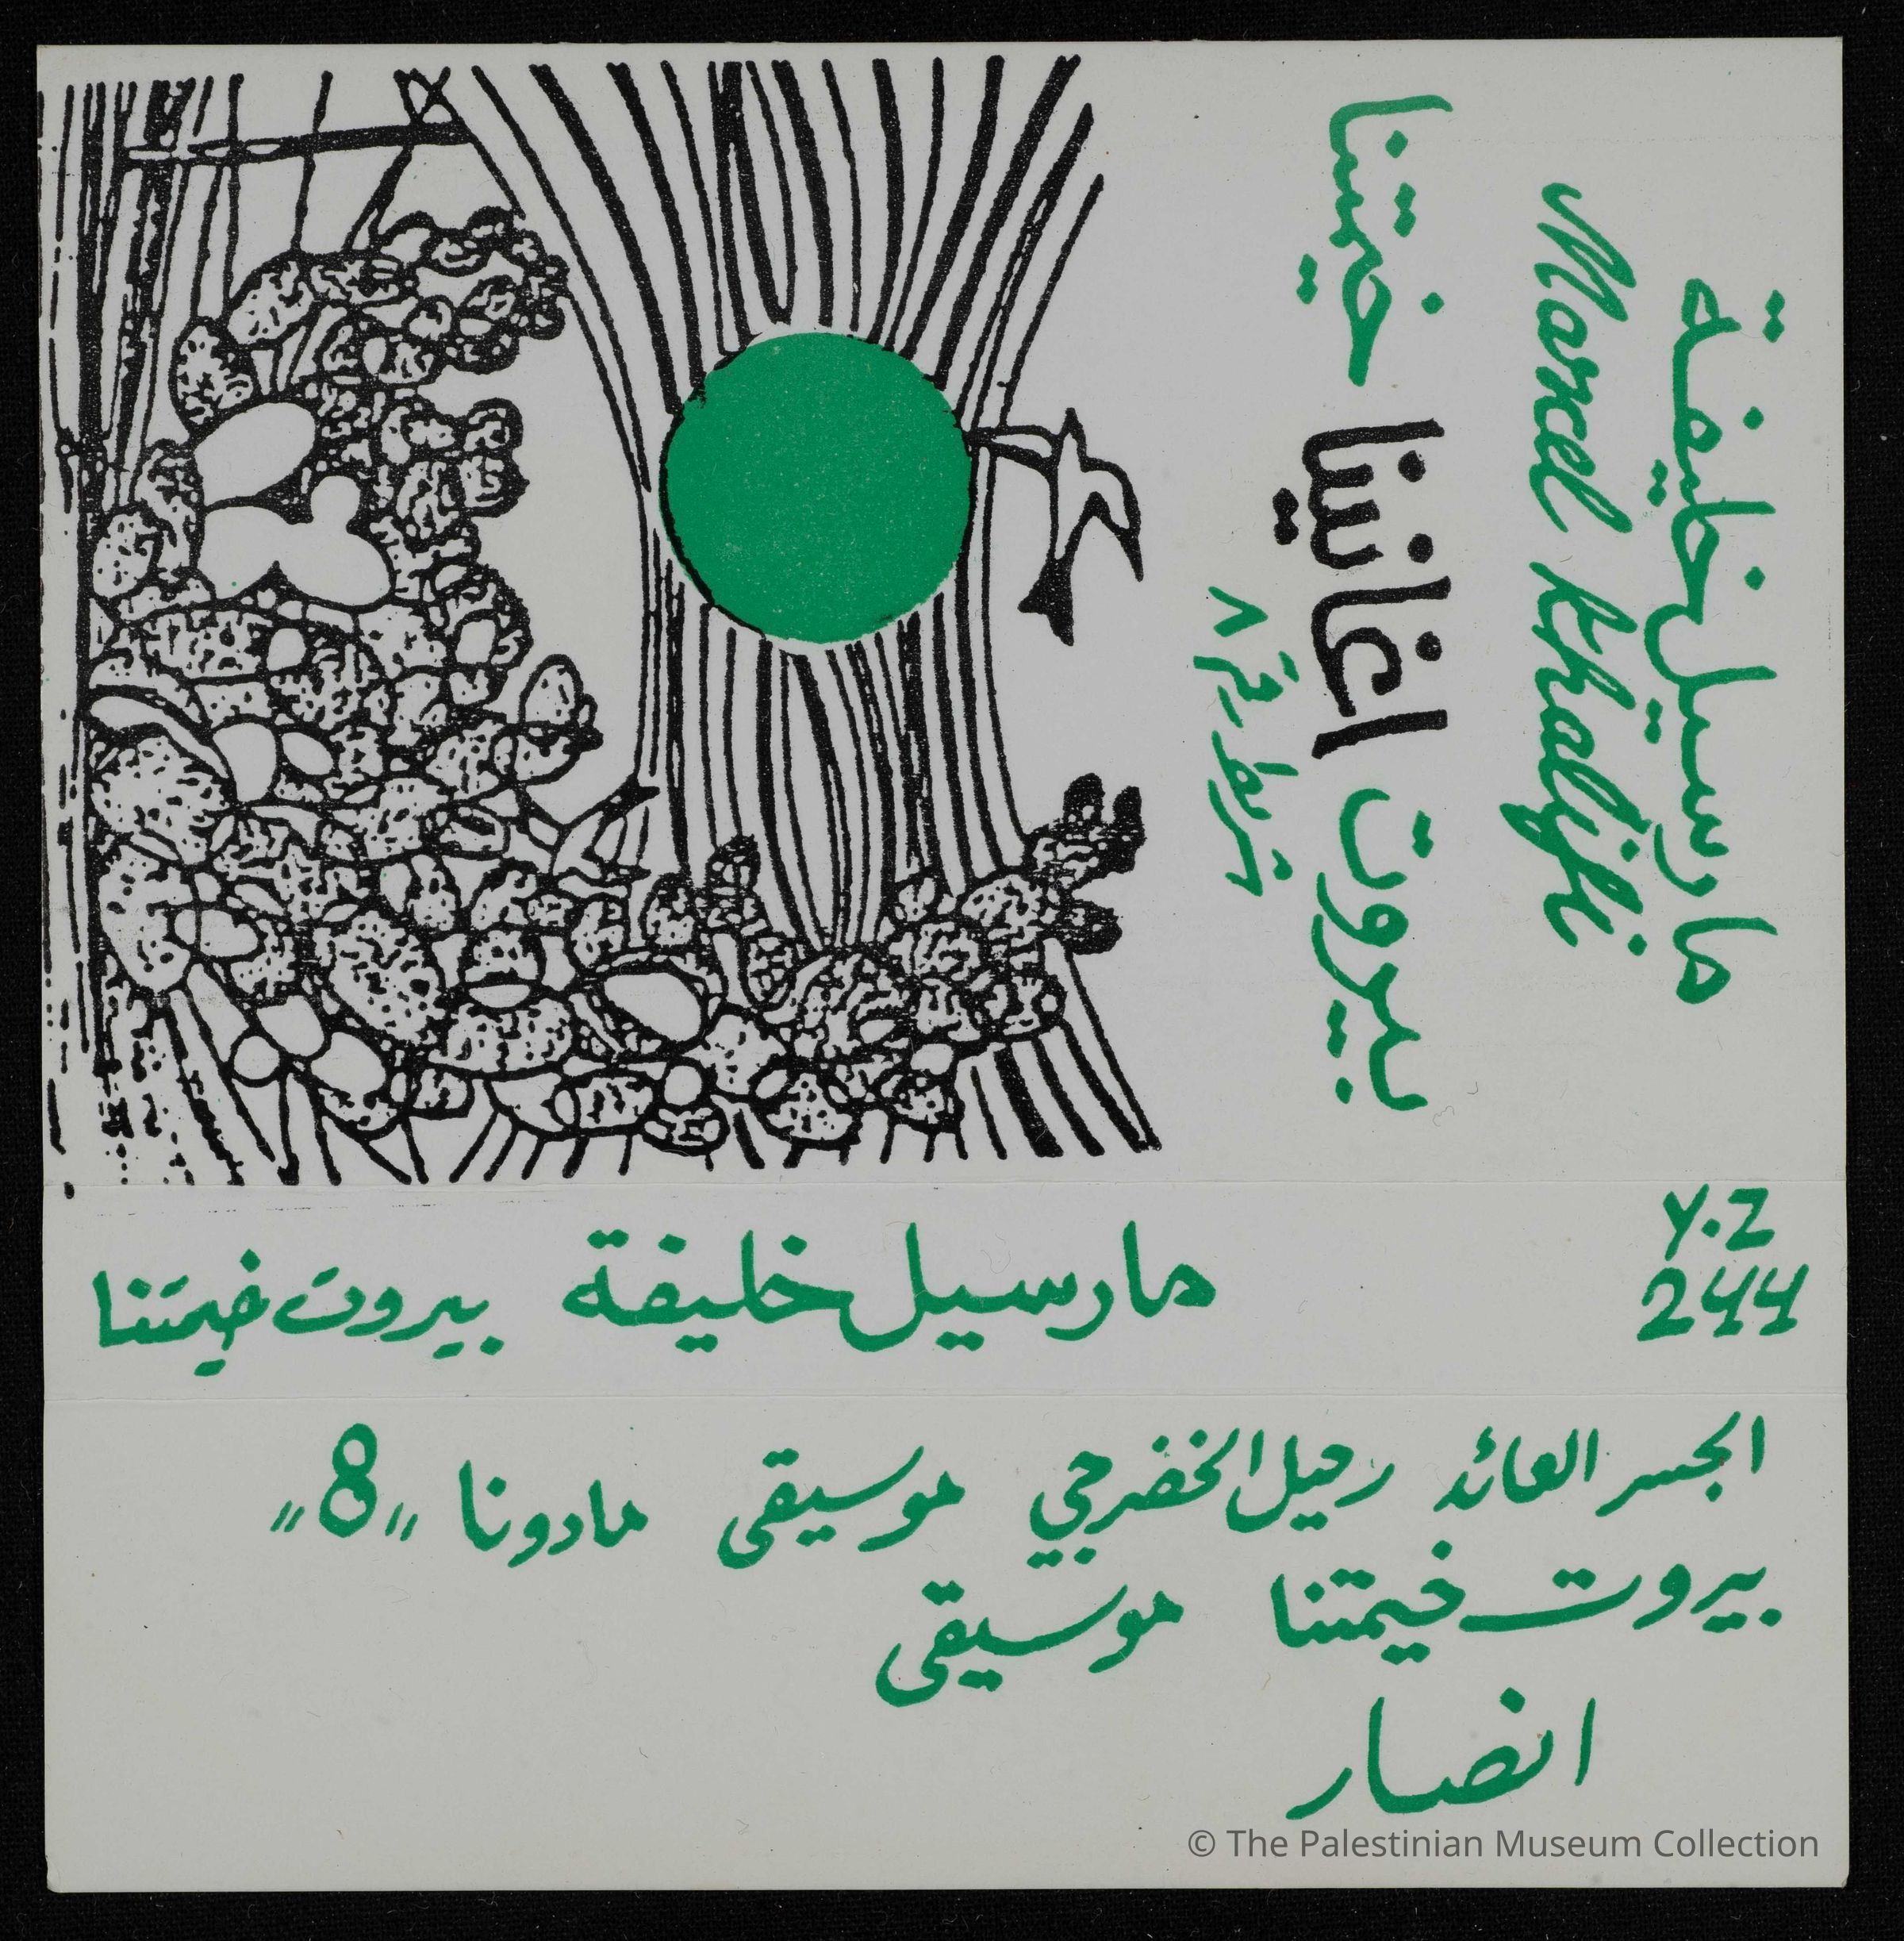 مارسيل خليفة
Marcel Khalifi
بيروت اغانينا خيمتنا
شريط رقم ٨
Y.Z
244
مارسيل خليفة بيروت خيمتنا
الجسر العائد رحيل الخضرجي موسيقى مادونا "8"
بيروت خيمتنا موسيقى
انصار
© The Palestinian Museum Collection